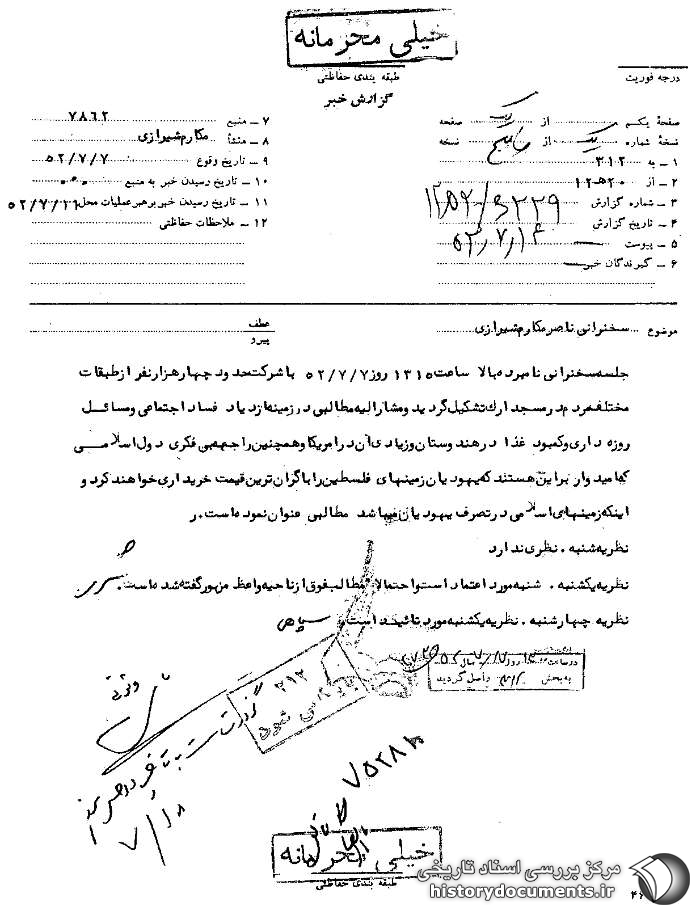 خیلی محرمانه
طبقه بندی حفاظتی
گزارش خبر
درجه فوریت
صفحهٔ یکم از یک صفحه
نسخهٔ شماره یک از پنج نسخه
۱ ـ به ۳۱۲
۲ ـ از ۲۰ه۱۲
۳ ـ شماره گزارش
۴ ـ تاریخ گزارش
۵ ـ پیوست
۶ ـ گیرندگان خبر
۷ ـ منبع ۷۸۶۲
۸ ـ منشأ مکارم شیرازی
۹ ـ تاریخ وقوع ۵۲/۷/۷
۱۰ ـ تاریخ رسیدن خبر به منبع
۱۱ ـ تاریخ رسیدن خبر برهبر عملیات محل ۵۲/۷/۱۱
۱۲ ـ ملاحظات حفاظتی
موضوع سخنرانی ناصر مکارم شیرازی
عطف
پیرو
جلسه سخنرانی نامبرده بالا ساعت ۱۳۱۵ روز ۵۲/۷/۷ با شرکت حدود چهار هزار نفر از طبقات
مختلف مردم در مسجد ارك تشکیل گردید و مشارالیه مطالبی در زمینه ازدیاد فساد اجتماعی و مسائل
روزه داری و کمبود غذا در هندوستان و زیادی آن در امریکا و همچنین راجع به بی فکری دول اسلامی
که امیدوار براین هستند که یهودیان زمینهای فلسطین را با گران ترین قیمت خریداری خواهند کرد و
اینکه زمینهای اسلامی در تصرف یهودیان میباشد مطالبی عنوان نموده است. ر
نظریه شنبه . نظری ندارد
نظریه یکشنبه . شنبه مورد اعتماد است و احتمالا مطالب فوق از ناحیه واعظ مزبور گفته شده است.
نظریه چهارشنبه . نظریه یکشنبه مورد تائید است.
در ساعت روز سال ۵۲
به بخش ۳۱۲ واصل گردید
۳۱۲
خیلی محرمانه
طبقه بندی حفاظتی
مرکز بررسی اسناد تاریخی
historydocuments.ir